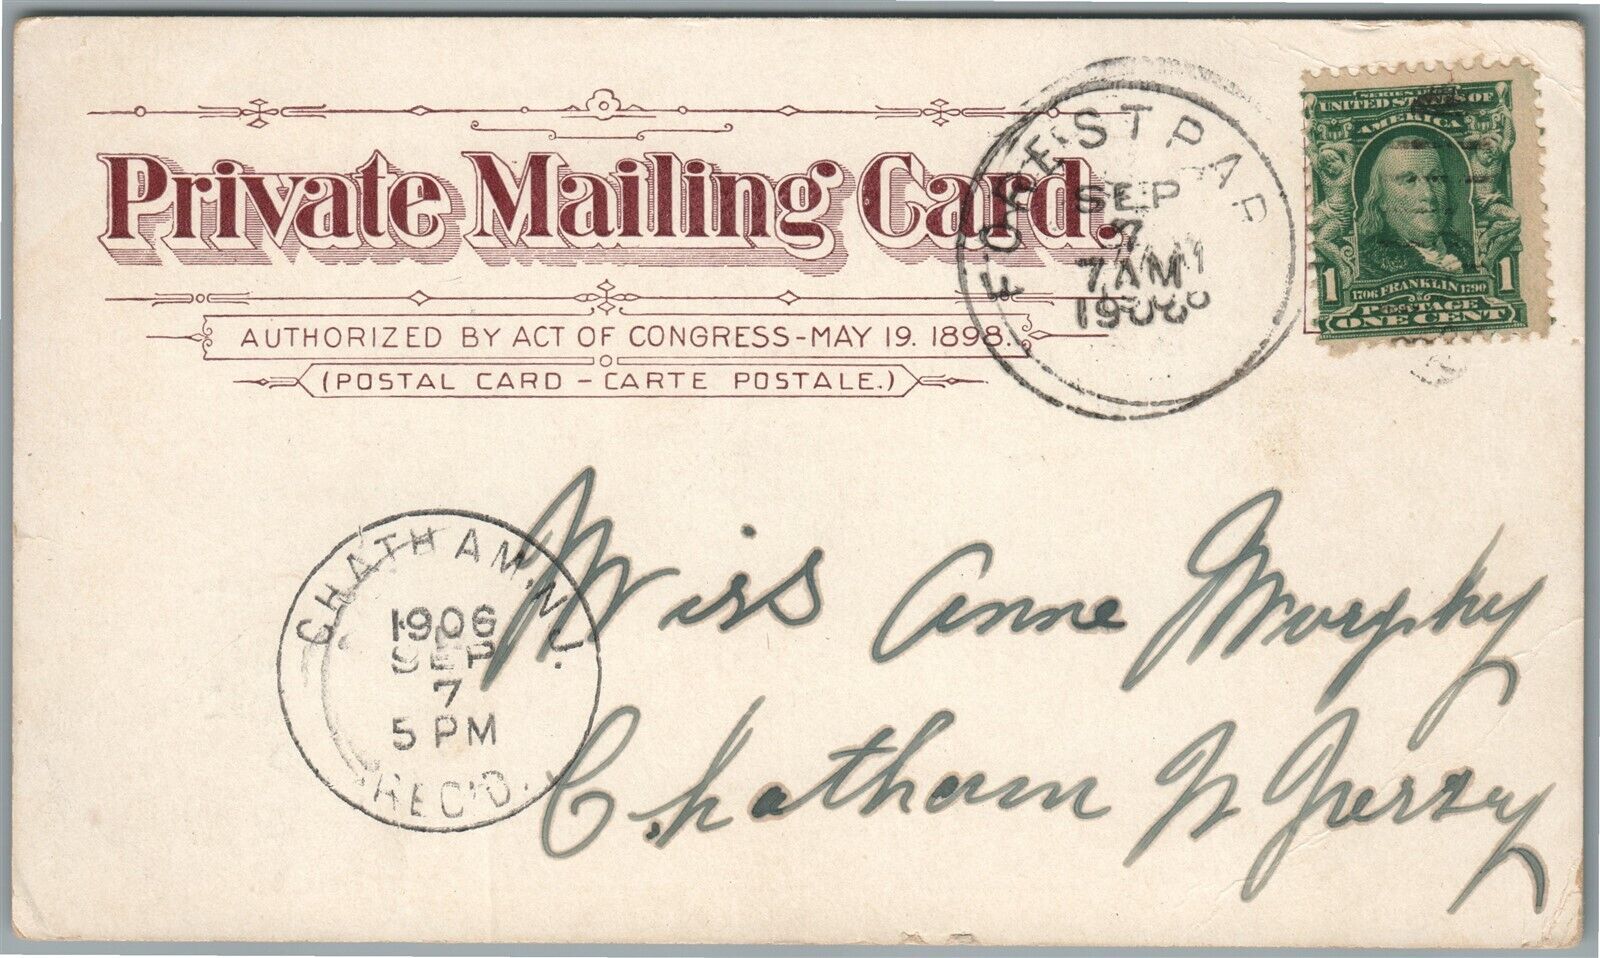 Private Mailing Card.
AUTHORIZED BY ACT OF CONGRESS-MAY 19. 1898.
(POSTAL CARD - CARTE POSTALE.)
FOREST PAR
SEP
7
7 AM
UNITED STATES OF
AMERICA
1 1706 FRANKLIN 1790 1
POSTAGE
ONE CENT
CHATHAM, N.J.
1906
SEP
7
5 PM
REC'D.
Miss Anne Murphy
Chatham N Jersey